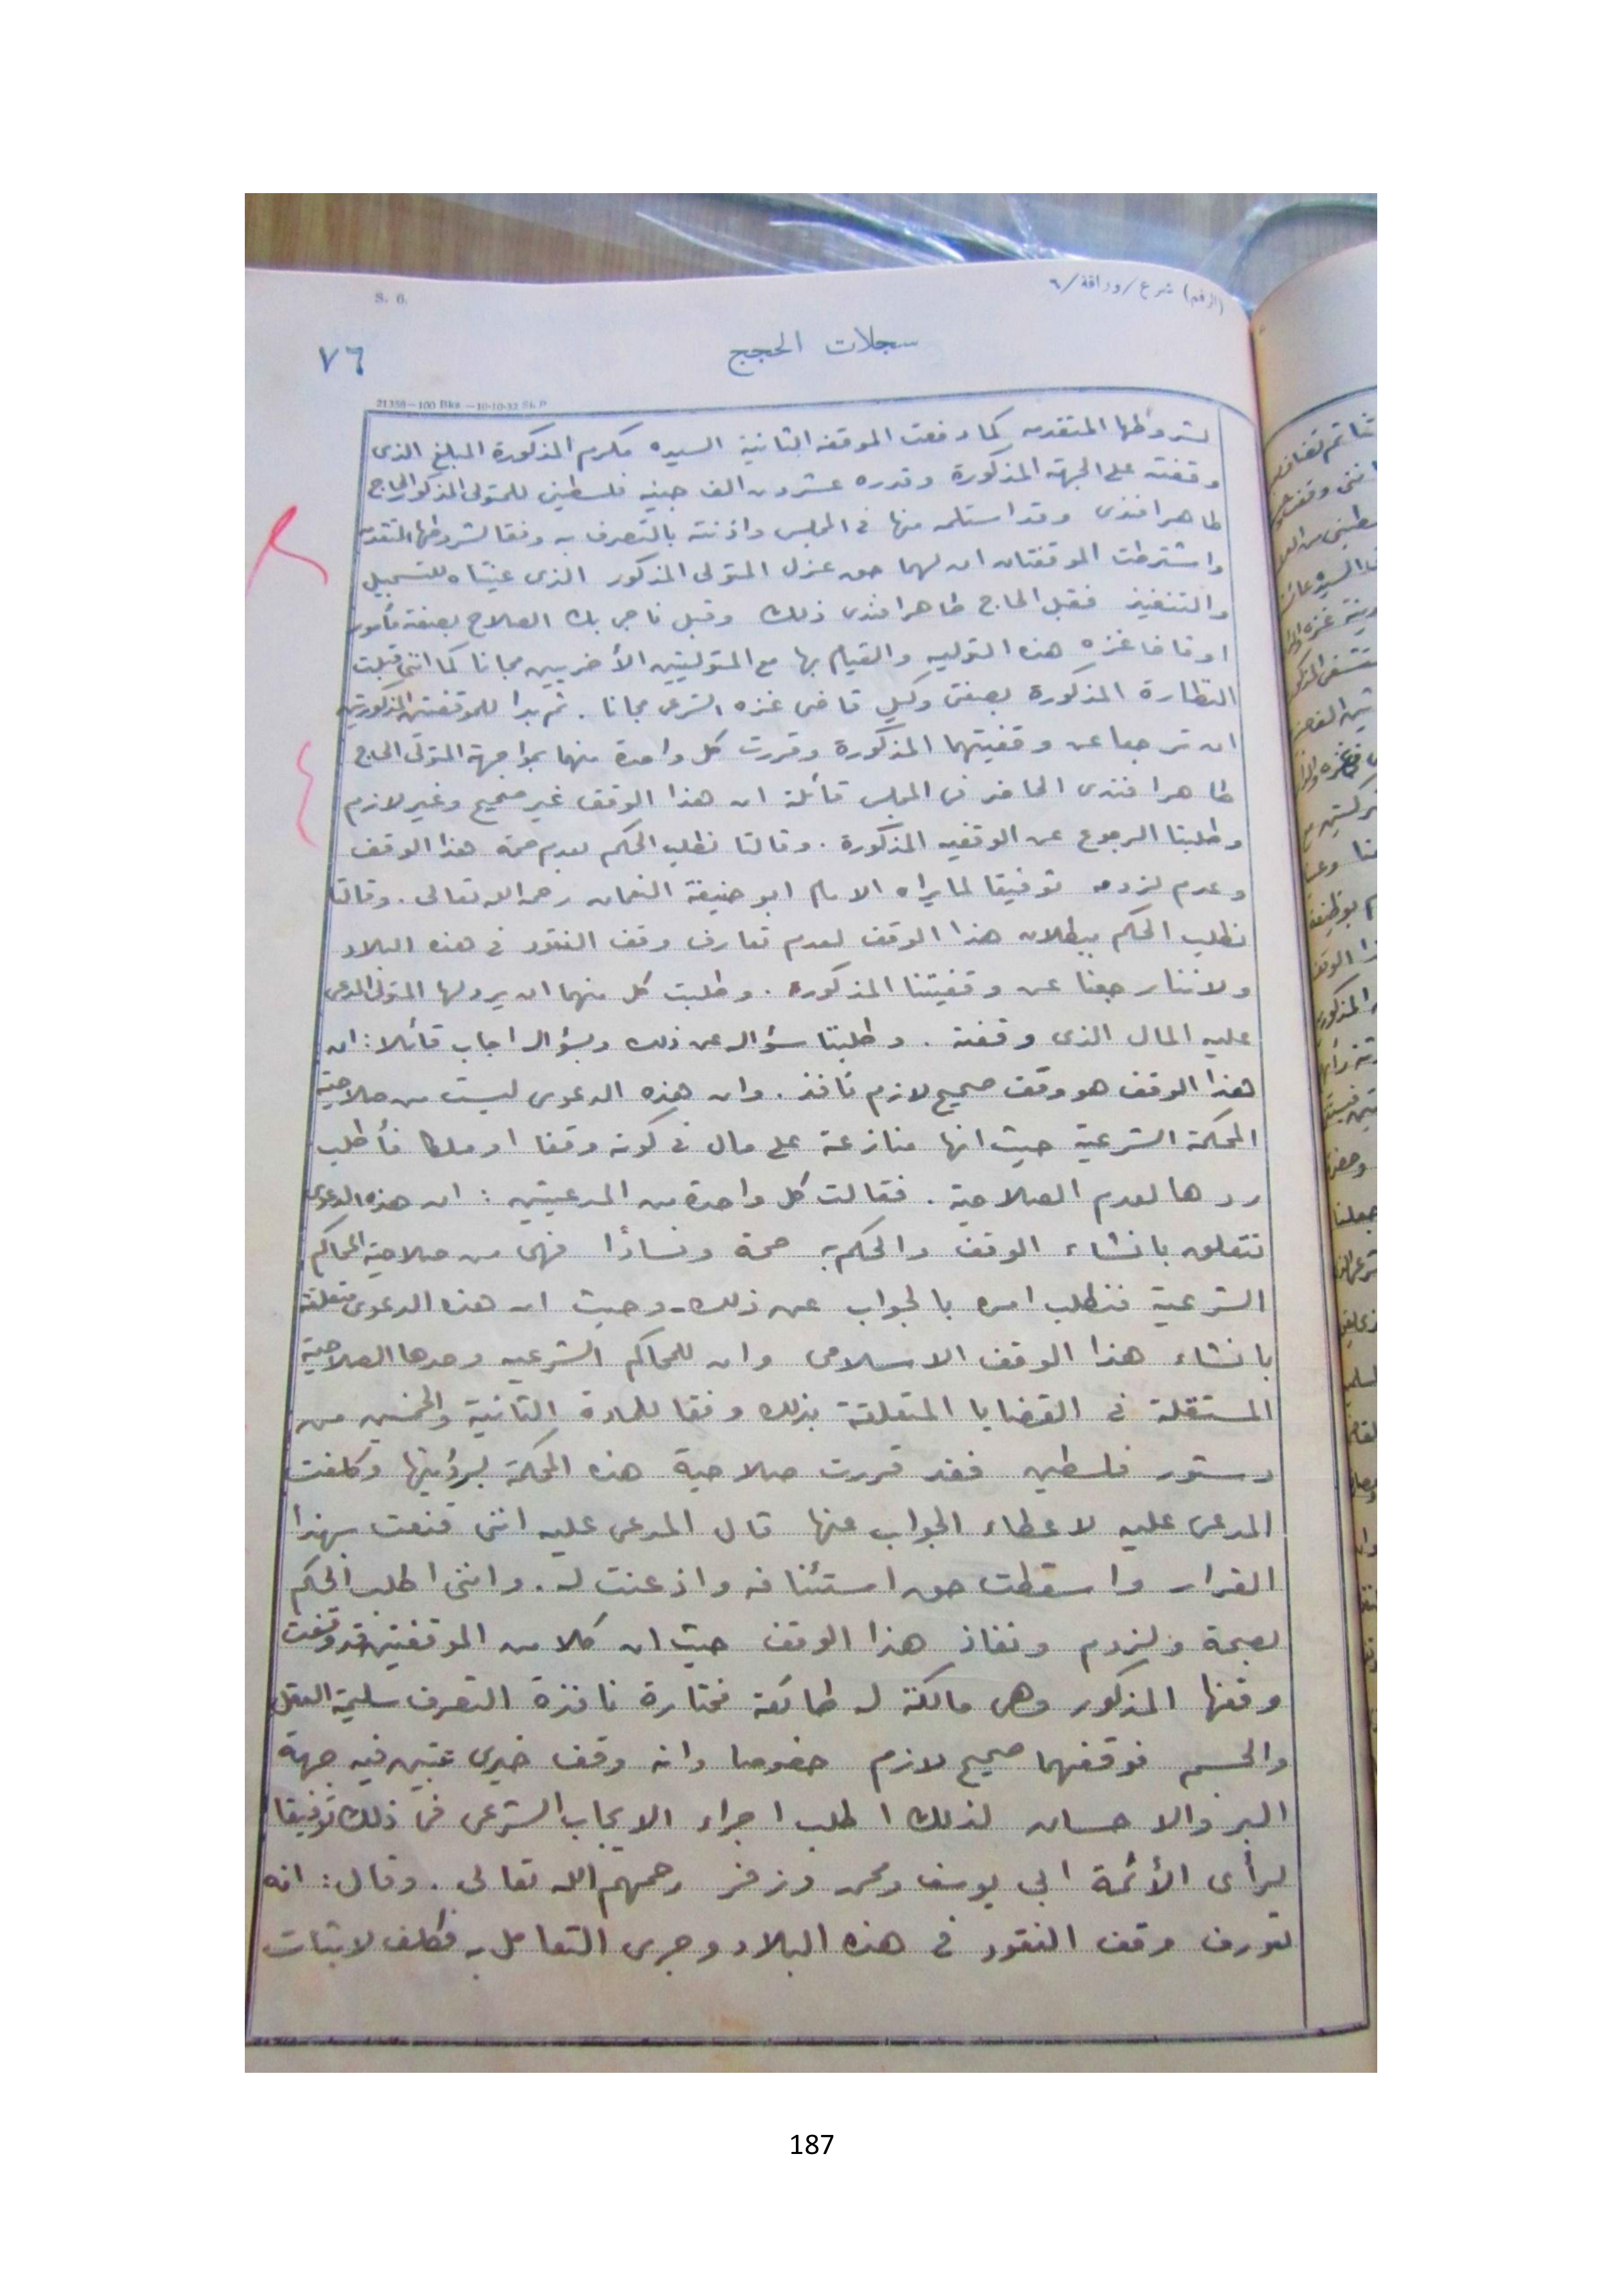 (الرقم) شرع/وراقة/٦
S. 6.
سجلات الحجج
٧٦
21358—100 Bks —10-10-32 St. P
لشروطها المتقدمه كما دفعت الموقفه الثانية السيده مكرم المذكورة المبلغ الذى
وقفته على الجهة المذكورة وقدره عشرون الف جنيه فلسطيني للمتولى المذكور الحاج
طاهر افندى وقد استلمه منها فى المجلس واذنته بالتصرف به وفقا لشروطها المتقدمه
واشترطت الموقفتان ان لهما حق عزل المتولى المذكور الذى عيناه للتسجيل
والتنفيذ فقبل الحاج طاهر افندى ذلك وقبل ناجي بك الصلاح بصفته مأمور
اوقاف غزه هذه التوليه والقيام بها مع المتوليتين الأخريين مجانا كما اننى قبلت
النظارة المذكورة بصفتى وكيل قاضى غزه الشرعى مجانا . ثم بدا للموقفتين المذكورتين
ان ترجعا عن وقفيتهما المذكورة وقررت كل واحدة منهما بمواجهة المتولى الحاج
طاهر افندى الحاضر فى المجلس قائلة ان هذا الوقف غير صحيح وغير لازم
وطلبتا الرجوع عن الوقفيه المذكورة . وقالتا نطلب الحكم بعدم صحة هذا الوقف
وعدم لزومه توفيقا لما يراه الامام ابو حنيفة النعمان رحمه الله تعالى . وقالتا
نطلب الحكم ببطلان هذا الوقف لعدم تعارف وقف النقود فى هذه البلاد
ولاننا رجعنا عن وقفيتنا المذكوره . وطلبت كل منهما ان يرد لها المتولى المدعى
عليه المال الذى وقفته . وطلبتا سؤاله عن ذلك وبسؤاله اجاب قائلا : ان
هذا الوقف هو وقف صحيح لازم نافذ . وان هذه الدعوى ليست من صلاحية
المحكمة الشرعية حيث انها منازعة على مال فى كونه وقفا او ملكا فأطلب
ردها لعدم الصلاحية . فقالت كل واحدة من المدعيتين : ان هذه الدعوى
تتعلق بانشاء الوقف والحكم به صحة وفسادًا فهى من صلاحية المحاكم
الشرعية فنطلب امره بالجواب عن ذلك . وحيث ان هذه الدعوى متعلقة
بانشاء هذا الوقف الاسلامى وان للمحاكم الشرعيه وحدها الصلاحية
المستقلة فى القضايا المتعلقة بذلك وفقا للمادة الثانية والخمسين من
دستور فلسطين فقد قررت صلاحية هذه المحكمة لرؤيتها وكلفت
المدعى عليه لاعطاء الجواب عنها قال المدعى عليه اننى قنعت بهذا
القرار واسقطت حق استئنافه واذعنت له . واننى اطلب الحكم
بصحة ولزوم ونفاذ هذا الوقف حيث ان كلا من الموقفتين قد وقفت
وقفها المذكور وهى مالكة له طائعة مختارة نافذة التصرف سليمة العقل
والجسم فوقفهما صحيح لازم خصوصا وانه وقف خيرى عينت فيه جهة
البر والاحسان لذلك اطلب اجراء الايجاب الشرعى فى ذلك توفيقا
لرأى الأئمة ابي يوسف ومحمد وزفر رحمهم الله تعالى . وقال : انه
تعورف وقف النقود فى هذه البلاد وجرى التعامل به فكلف لاثبات
187